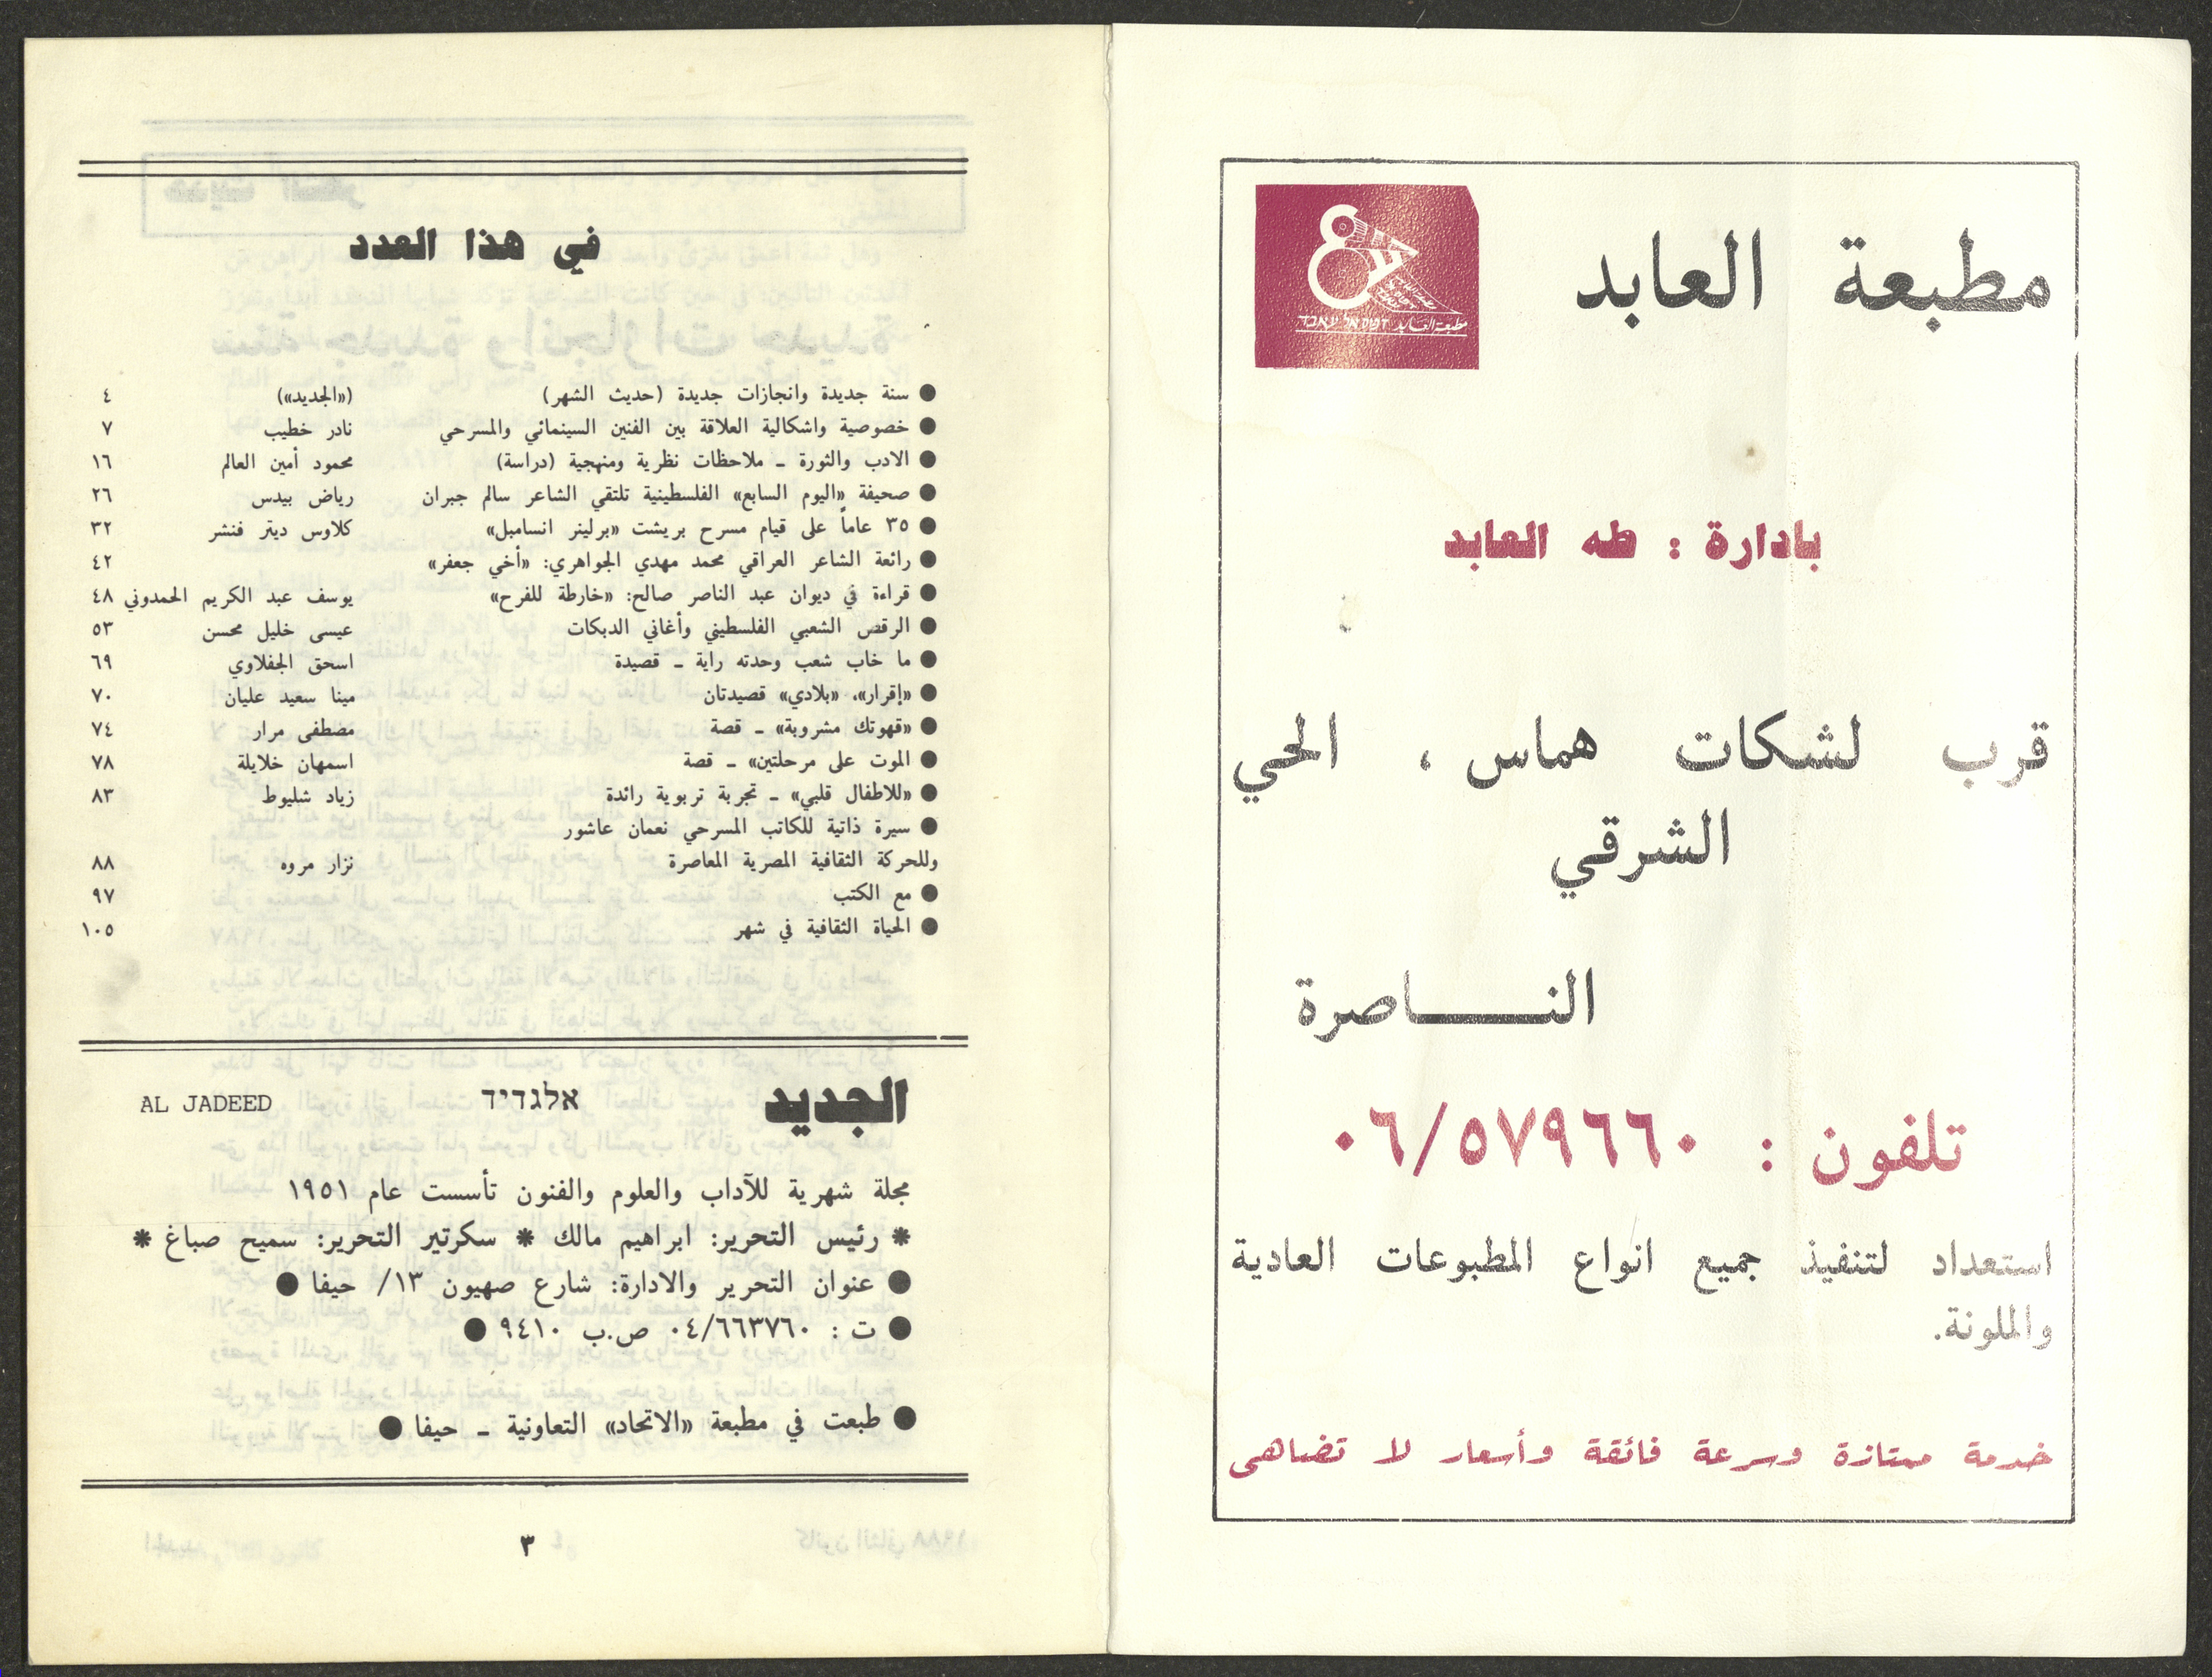 مطبعة العابد
مطبعة العابد דפוס אל עאבד
بادارة : طه العابد
قرب لشكات هماس ، الحي
الشرقي
النـــــاصرة
تلفون : ٠٦/٥٧٩٦٦٠
استعداد لتنفيذ جميع انواع المطبوعات العادية
والملونة.
خدمة ممتازة وسرعة فائقة وأسعار لا تضاهى
في هذا العدد
● سنة جديدة وانجازات جديدة (حديث الشهر) («الجديد») ٤
● خصوصية واشكالية العلاقة بين الفنين السينمائي والمسرحي نادر خطيب ٧
● الادب والثورة ـ ملاحظات نظرية ومنهجية (دراسة) محمود أمين العالم ١٦
● صحيفة «اليوم السابع» الفلسطينية تلتقي الشاعر سالم جبران رياض بيدس ٢٦
● ٣٥ عاماً على قيام مسرح بريشت «برلينر انسامبل» كلاوس ديتر فنشر ٣٢
● رائعة الشاعر العراقي محمد مهدي الجواهري: «أخي جعفر» ٤٢
● قراءة في ديوان عبد الناصر صالح: «خارطة للفرح» يوسف عبد الكريم الحمدوني ٤٨
● الرقص الشعبي الفلسطيني وأغاني الدبكات عيسى خليل محسن ٥٣
● ما خاب شعب وحدته راية ـ قصيدة اسحق الجفلاوي ٦٩
● «إقرار»، «بلادي» قصيدتان مينا سعيد عليان ٧٠
● «قهوتك مشروبة» ـ قصة مصطفى مرار ٧٤
● الموت على مرحلتين» ـ قصة اسمهان خلايلة ٧٨
● «للاطفال قلبي» ـ تجربة تربوية رائدة زياد شليوط ٨٣
● سيرة ذاتية للكاتب المسرحي نعمان عاشور
وللحركة الثقافية المصرية المعاصرة نزار مروه ٨٨
● مع الكتب ٩٧
● الحياة الثقافية في شهر ١٠٥
الجديد אלגדיד AL JADEED
مجلة شهرية للآداب والعلوم والفنون تأسست عام ١٩٥١
* رئيس التحرير: ابراهيم مالك * سكرتير التحرير: سميح صباغ *
● عنوان التحرير والادارة: شارع صهيون ١٣/ حيفا ●
● ت : ٠٤/٦٦٣٧٦٠ ص.ب ٩٤١٠ ●
● طبعت في مطبعة «الاتحاد» التعاونية ـ حيفا ●
٣